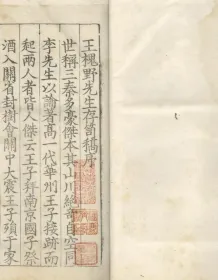 王槐野先生存笥稿序
世稱三秦多豪傑本其山川絕奇自空同
李先生以詩著高一代華州王子接跡而
起兩人者皆人傑云王子拜南京國子祭
酒入關省封樹會關中大震王子殞于家